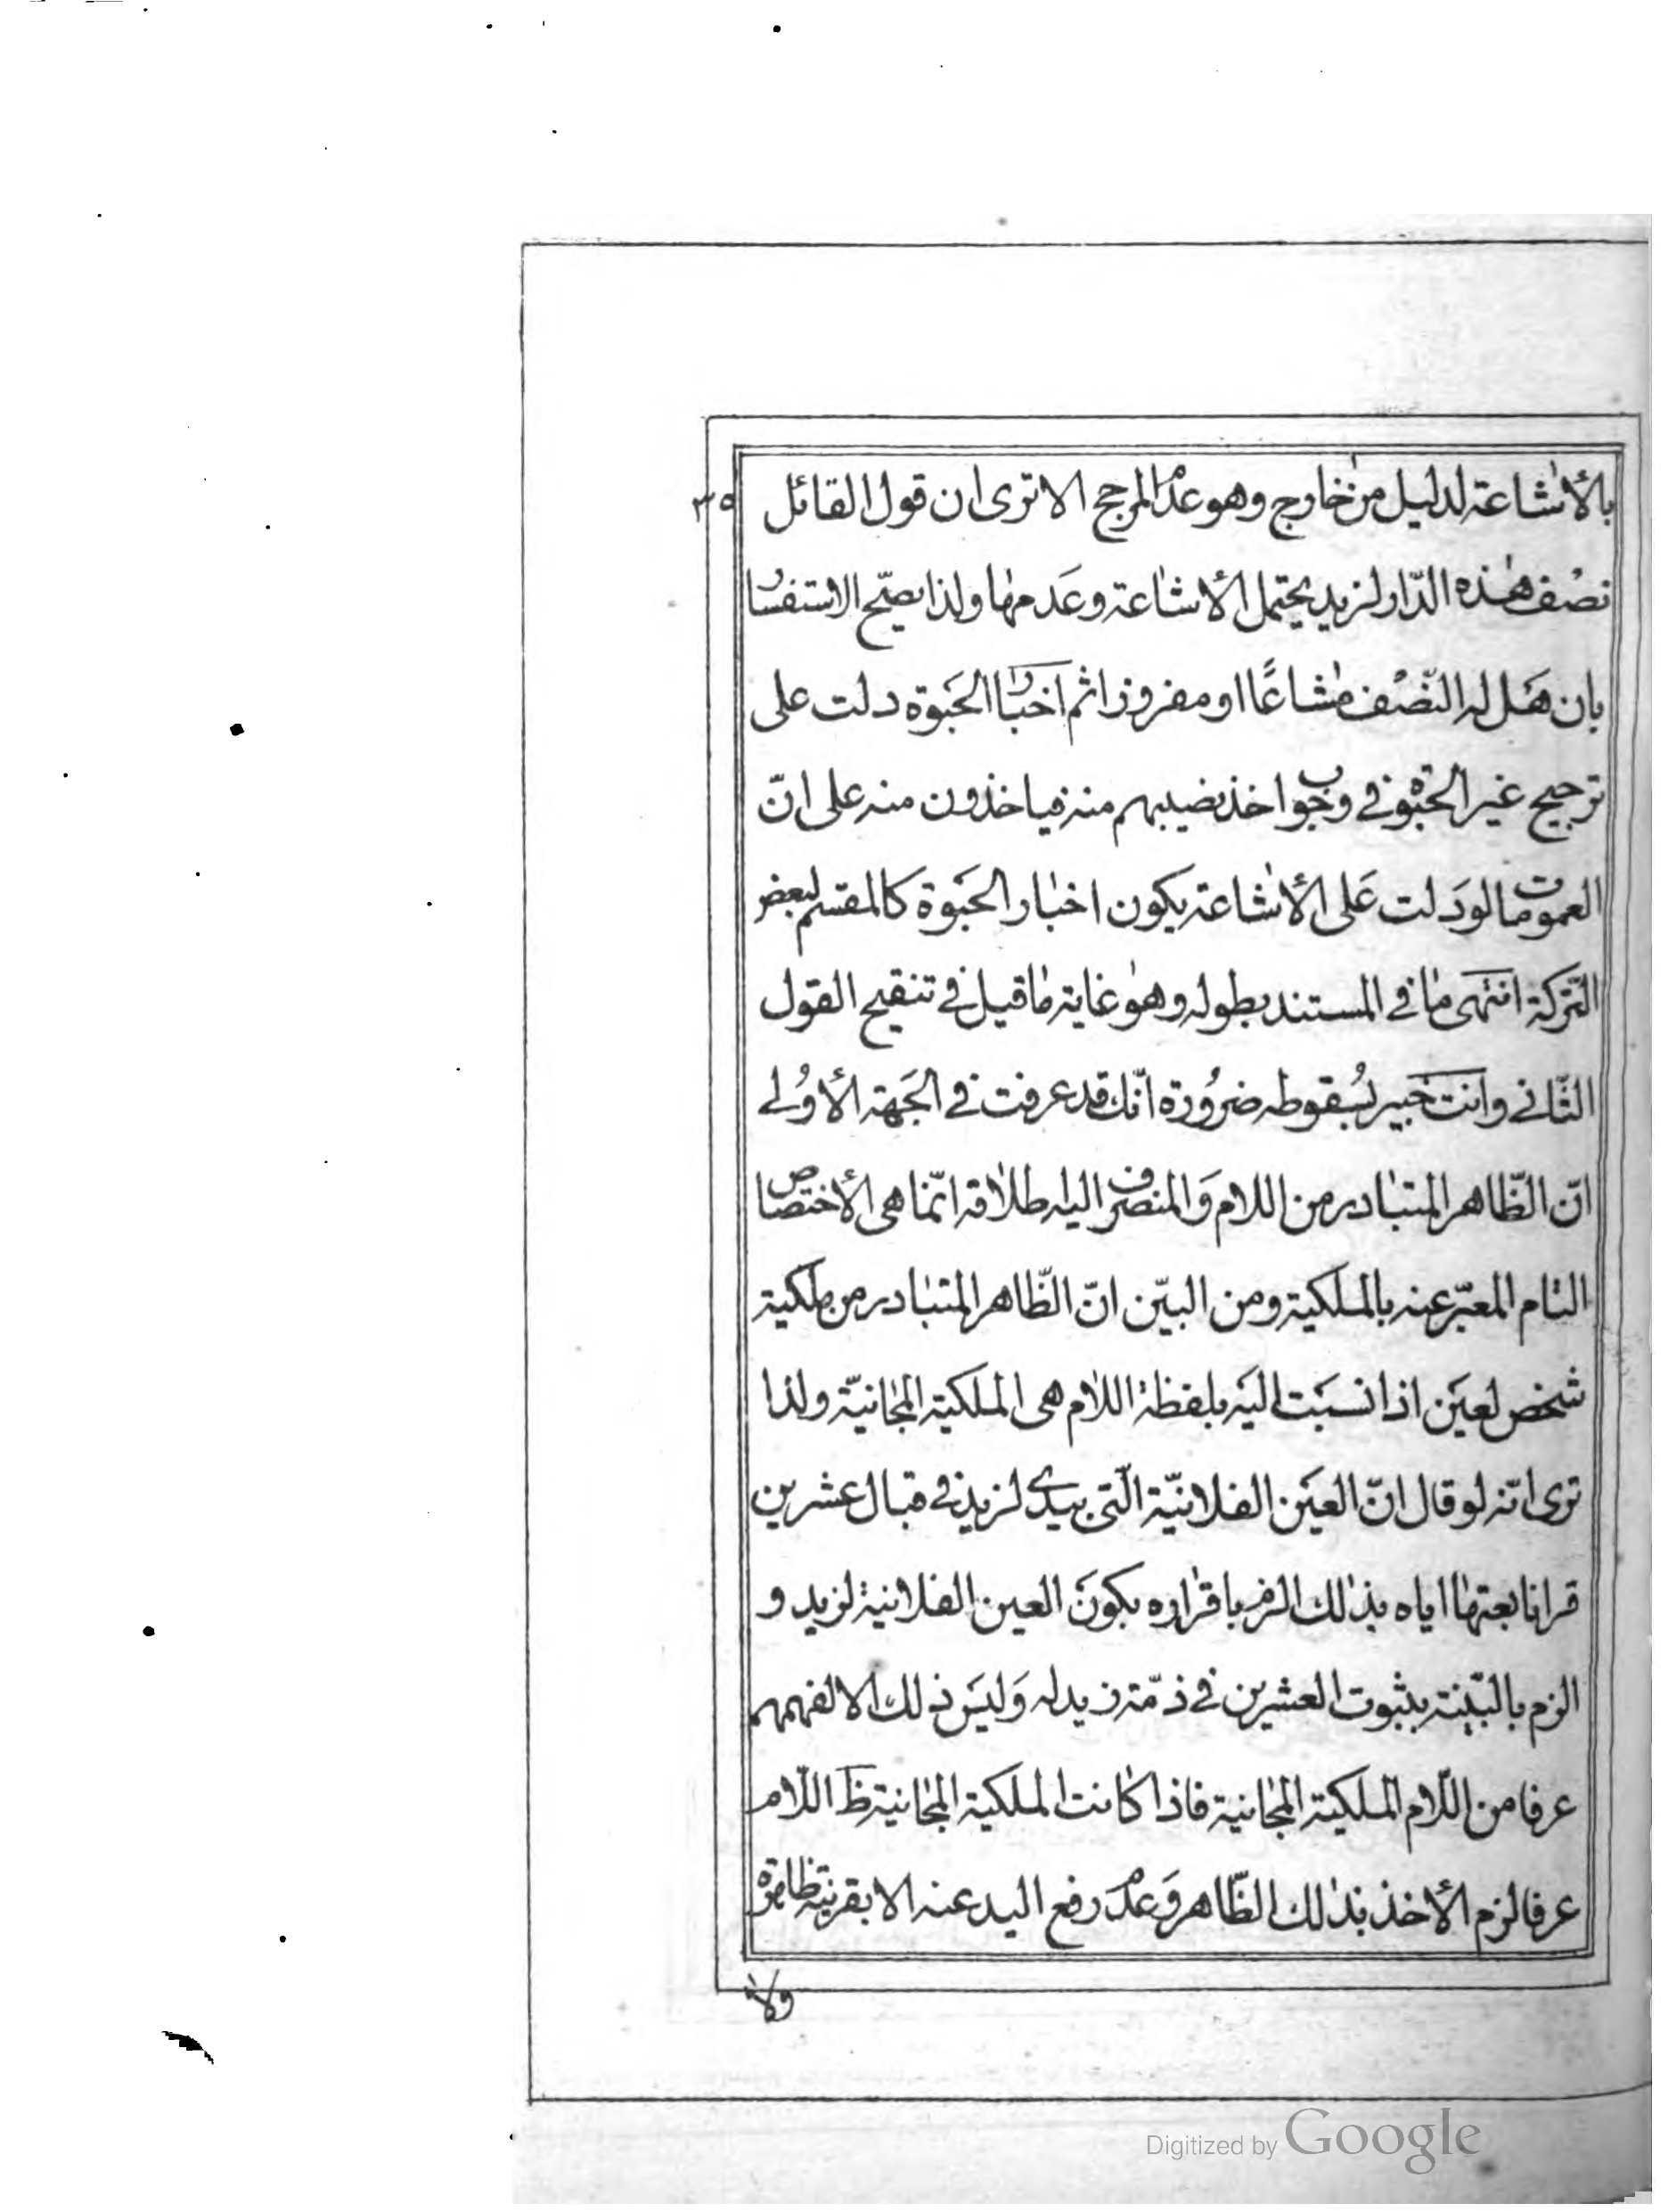 بالأشاعة لدليل من خارج وهو عدم المرجح الا ترى ان قول القائل
٣٥
نصف هذه الدّار لزيد يحتمل الأشاعة وعدمها ولذا يصحّ الاستفسار
بان هَل له النّصْف مشاعًا او مفروزا ثم اخبار الحَبوة دلت على
ترجيح غير الحبوة في وجوب اخذ نصيبهم منه فياخذون منه على انّ
العمومات لو دَلت عَلى الأشاعة يكون اخبار الحَبوة كالمقسم لبعض
التّركة انتهى ما في المستند بطوله وهو غاية ما قيل في تنقيح القول
الثّاني وانت خَبير بسُقوطه ضرُورة انّك قد عرفت في الجَهة الأوُلى
انّ الظّاهر المتبادر من اللام وَالمنصرف اليه اطلاقه انّما هي الأختصاص
التام المعبّر عنه بالملكية ومن البيّن انّ الظّاهر المتبادر من ملكية
شخص لعيَن اذا نسبَت اليَه بلفظة اللام هي الملكية المجانيّة ولذا
ترى انّه لو قال انّ العيَن الفلانيّة الّتي بيدي لزيد في قبال عشرين
قرانا بعتها اياه بذلك الزم باقراره بكونَ العين الفلانية لزيد و
الزم بالبيّنة بثبوت العشرين في ذمّة زيد له وَليسَ ذلك الا لفهمهم
عرفا من اللّام الملكية المجانية فاذا كانت الملكية المجانية ظَ اللّام
عرفا لزم الأخذ بذلك الظّاهر وَعدم رفع اليد عنه الا بقرينة ظاهرة
ولا
Digitized by Google